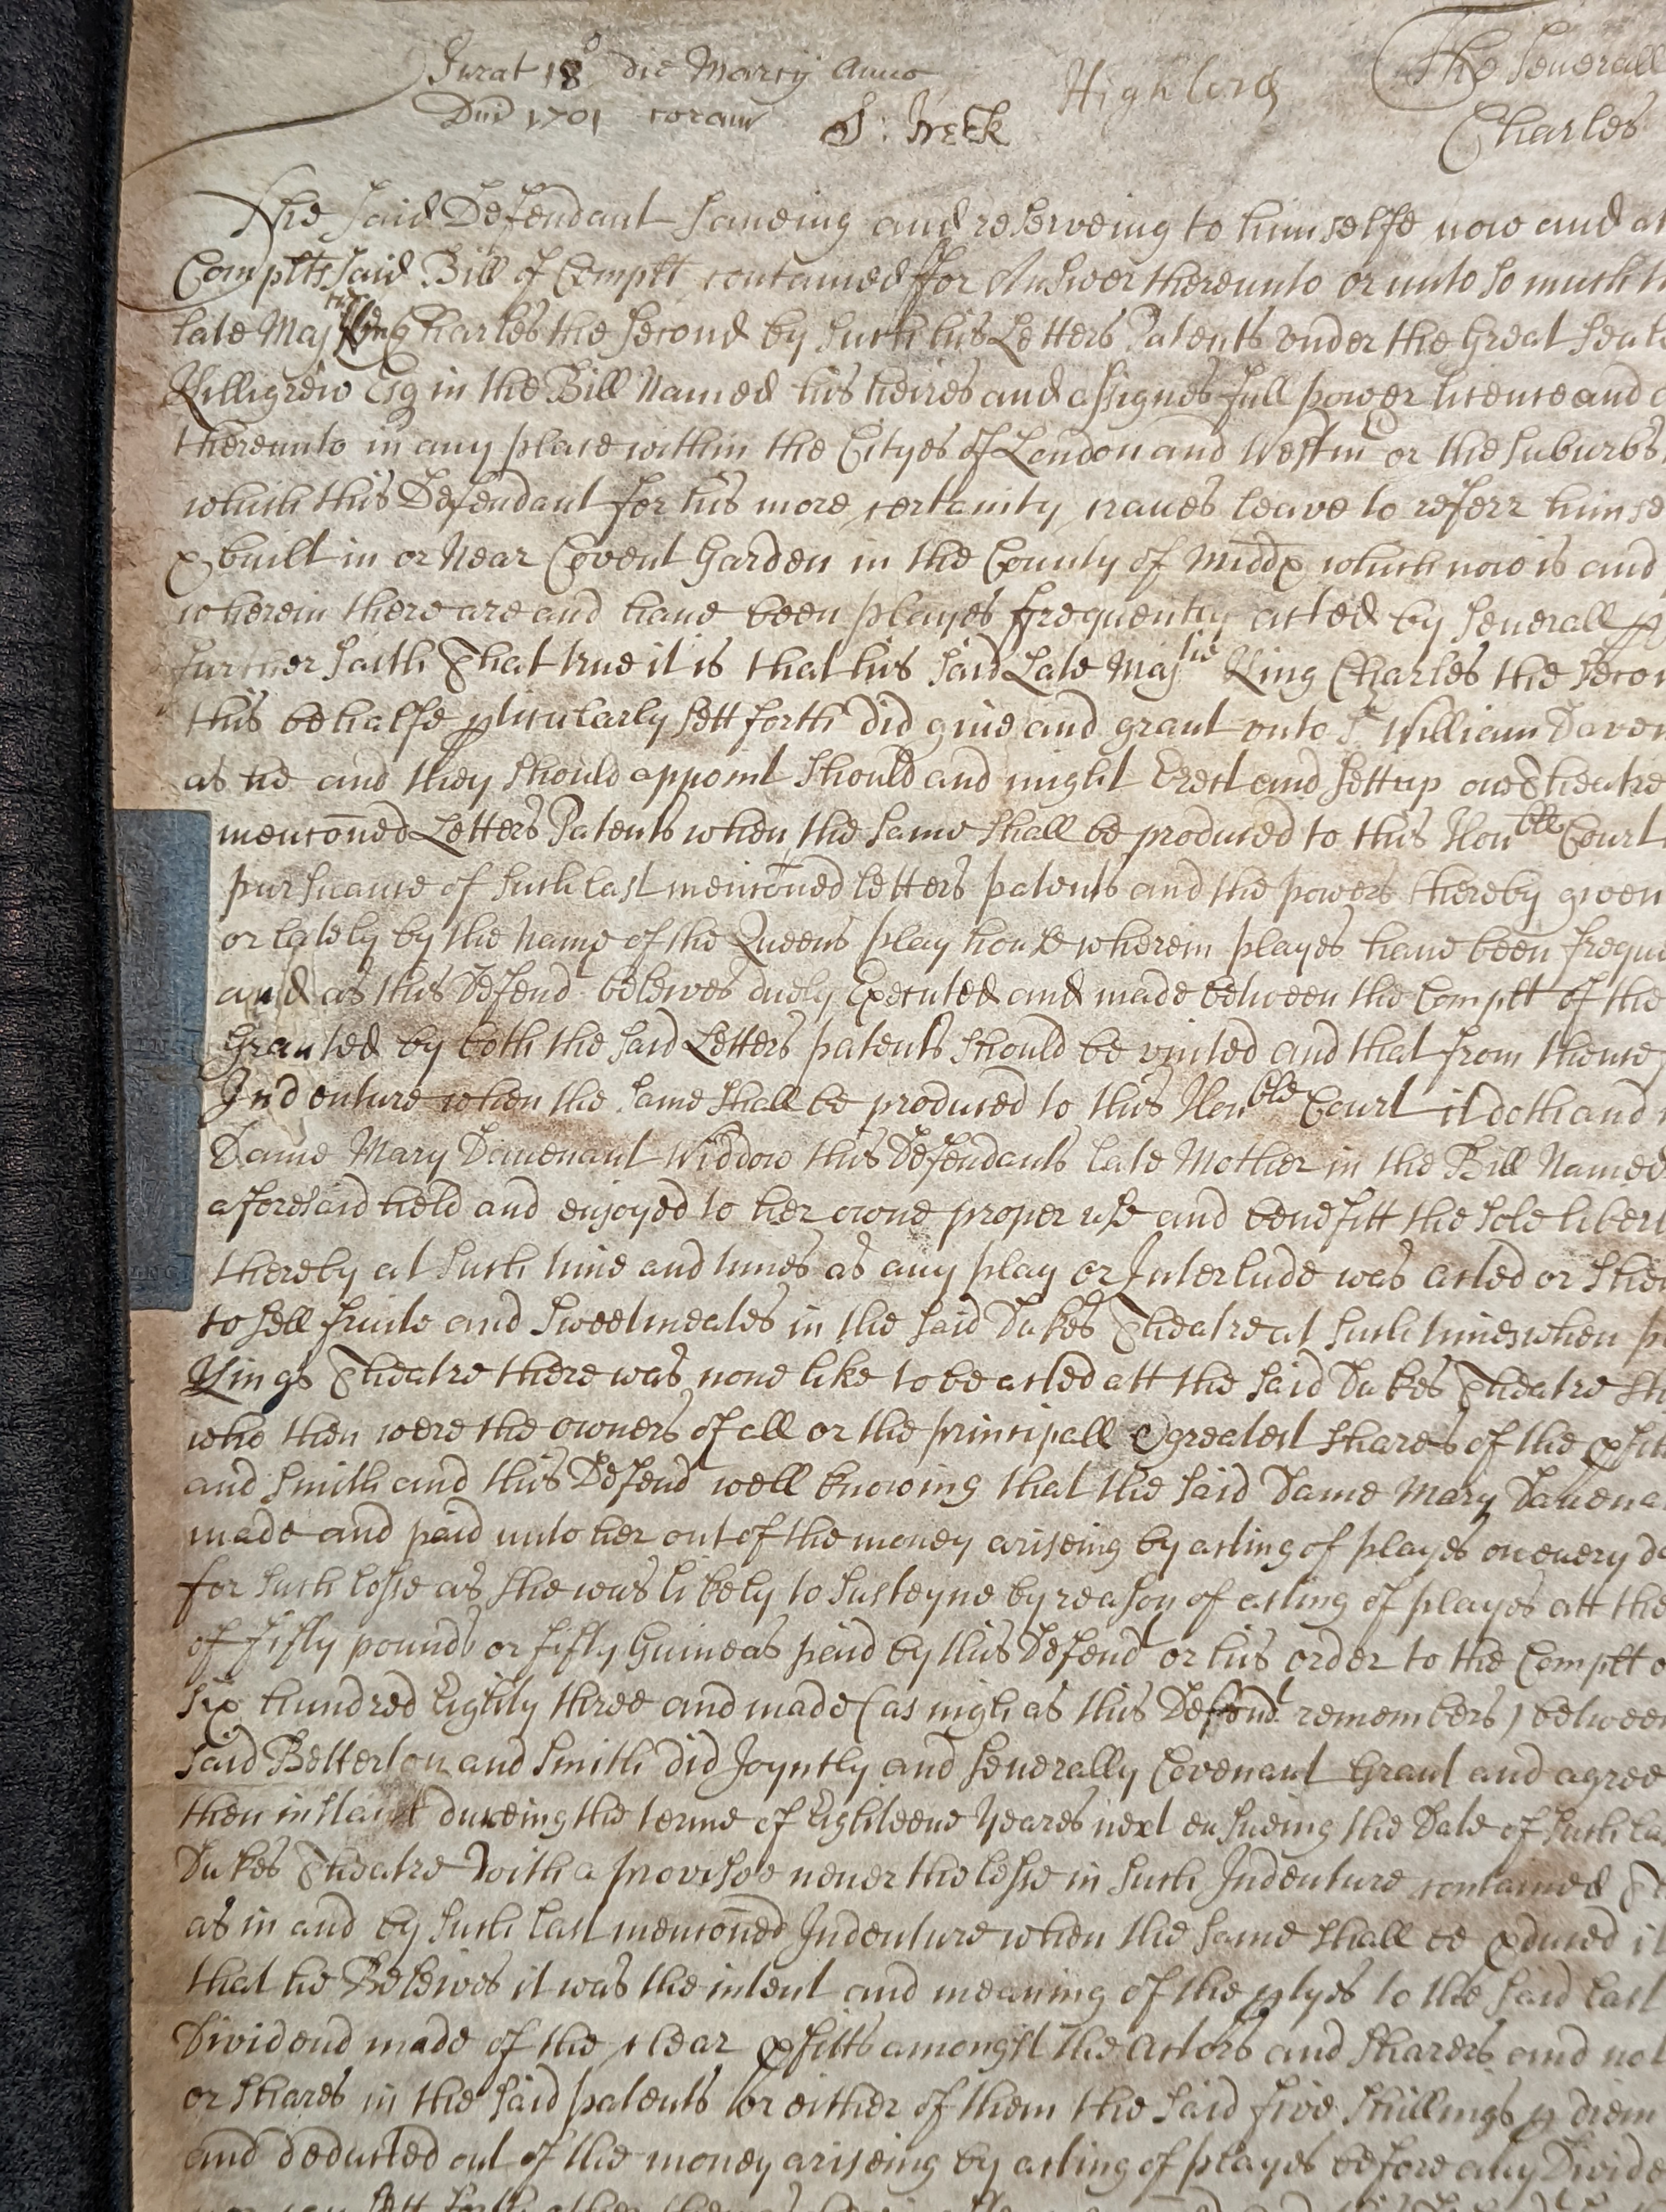 Jurat 18° die Marcij Anno
Dni 1701 coram S: Keck
Highlord
The severall
Charles
The said Defendant saveing and reserveing to himselfe now and at
Complts said Bill of Complt contained ffor Answer thereunto or unto so much
late Maj^tie King Charles the second by such his Letters Patents under the Great Seale
Killigrew Esq in the Bill Named his heires and assignes full power licence and
thereunto in any place within the Cityes of London and Westm^r or the suburbs
which this Defendant for his more certainty craves leave to referr himse
built in or Near Covent Garden in the County of Middx which now is and
wherein there are and have been playes ffrequently acted by severall p
further saith That true it is that his said Late Maj^tie King Charles the secon
this behalfe pticularly sett forth did give and grant unto S^r William Daven
as he and they should appoint should and might Erect and sett up one Theatre
menconed Letters Patents when the same shall be produced to this Hon^ble Court
pursuance of such last menconed letters patents and the powers thereby given
or lately by the Name of the Queens play house wherein playes have been freque
and as this Defend^t beleives duely Executed and made between the Complt of the
Granted by both the said Letters patents should be united and that from thence
Indenture when the same shall be produced to this Hon^ble Court it doth and
Dame Mary Davenant Widdow this Defendants late Mother in the Bill Named
aforesaid held and enjoyed to her owne proper use and benefitt the sole libert
thereby at such time and times as any play or Interlude was acted or shew
to sell fruite and sweetmeates in the said Dukes Theatre at such times when p
Kings Theatre there was none like to be acted att the said Dukes Theatre
who then were the owners of all or the principall & greatest shares of the pfitt
and Smith and this Defend^t well knowing that the said Dame Mary Davena
made and paid unto her out of the money ariseing by acting of playes on every da
for such losse as she was likely to susteyne by reason of acting of playes att the
of fifty pounds or fifty Guineas paid by this Defend^t or his order to the Complt o
six hundred Eighty three and made (as nigh as this Defend^t remembers) between
said Betterton and Smith did Joyntly and severally Covenant Grant and agree
then instant dureing the terme of Eighteene Yeares next ensueing the Date of such la
Dukes Theatre with a provisoe neverthelesse in such Indenture contained
as in and by such last menconed Indenture when the same shall be pduced it
that he Beleives it was the intent and meaning of the ptyes to the said last
Dividend made of the clear pfitts amongst the Actors and sharers and not
or shares in the said patents or either of them the said five shillings p diem
and deducted out of the money ariseing by acting of playes before any Divide